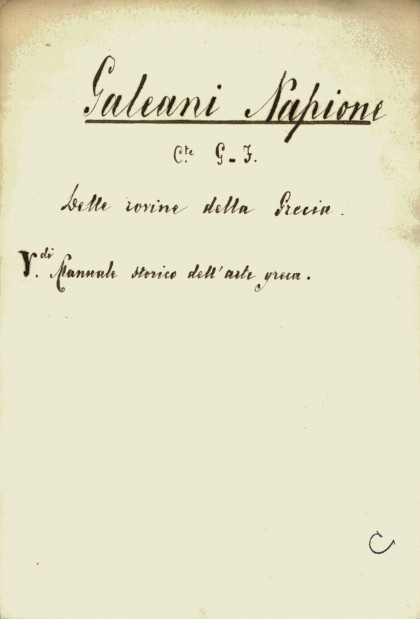 Galeani Napione
Cte. G-F.
Delle rovine della Grecia.
Vdi. Manuale storico dell'arte greca.
C